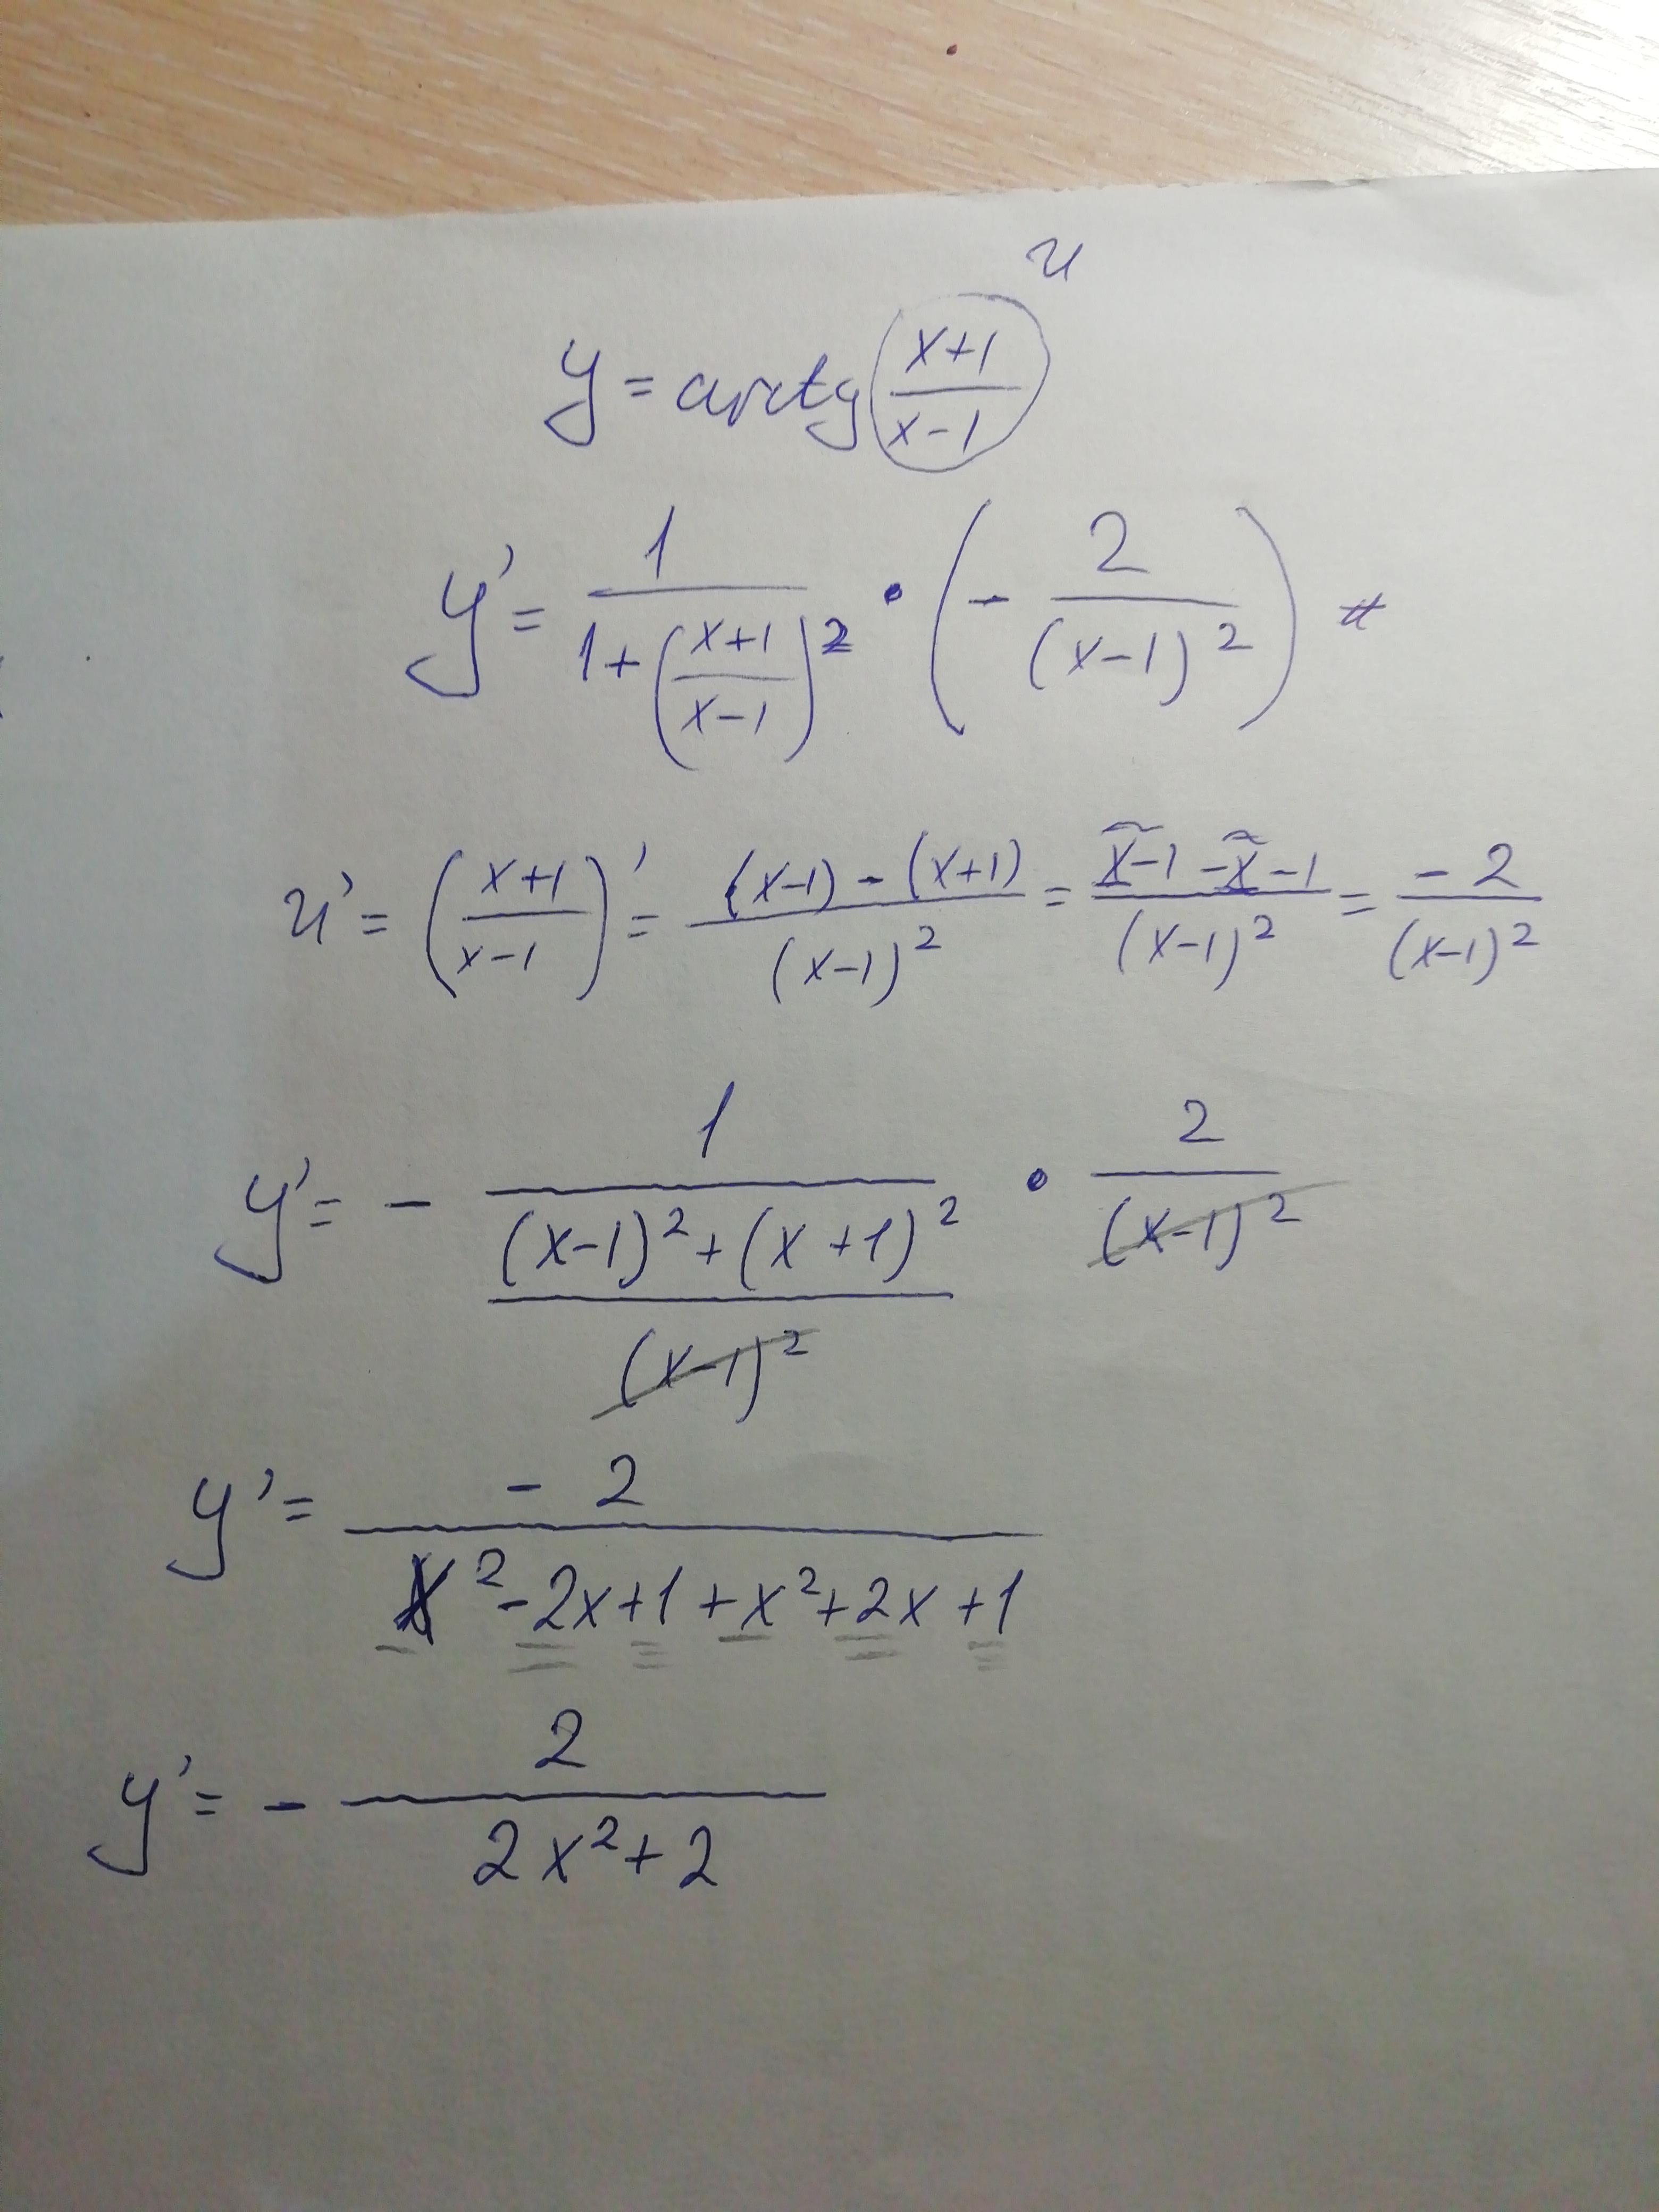 u
y = arctg (x+1)/(x-1)
y' = 1/(1+((x+1)/(x-1))²) · (- 2/(x-1)²) =
u' = ((x+1)/(x-1))' = ((x-1) - (x+1))/(x-1)² = (x-1-x-1)/(x-1)² = -2/(x-1)²
y' = - 1/(((x-1)²+(x+1)²)/(x-1)²) · 2/(x-1)²
y' = -2/(x²-2x+1+x²+2x+1)
y' = - 2/(2x²+2)